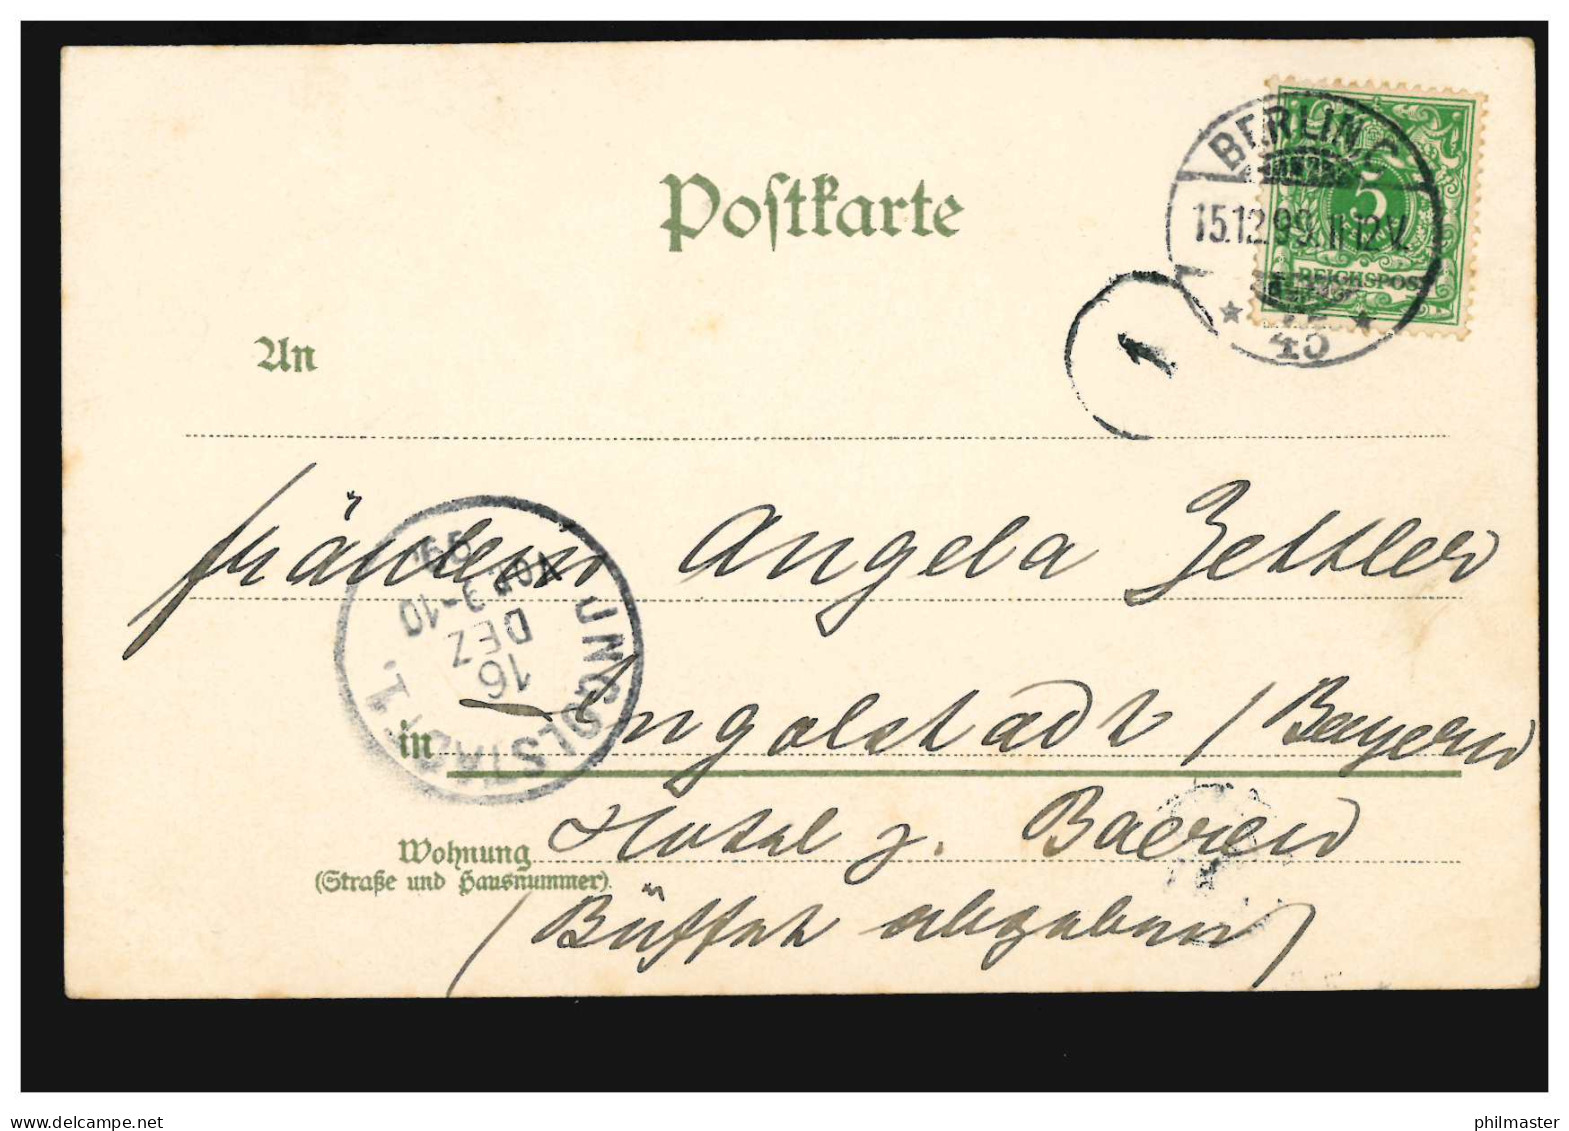 Postkarte
BERLIN C
15.12.99. 11-12 V.
* 45 *
5
REICHSPOST
1
An
Fräulein Angela Zettler
INGOLSTADT I.
16
DEZ
9-10
99.
in Ingolstadt / Bayern
Wohnung Hotel z. Baeren
(Straße und Hausnummer).
(Büffet abgeben)
www.delcampe.net
philmaster